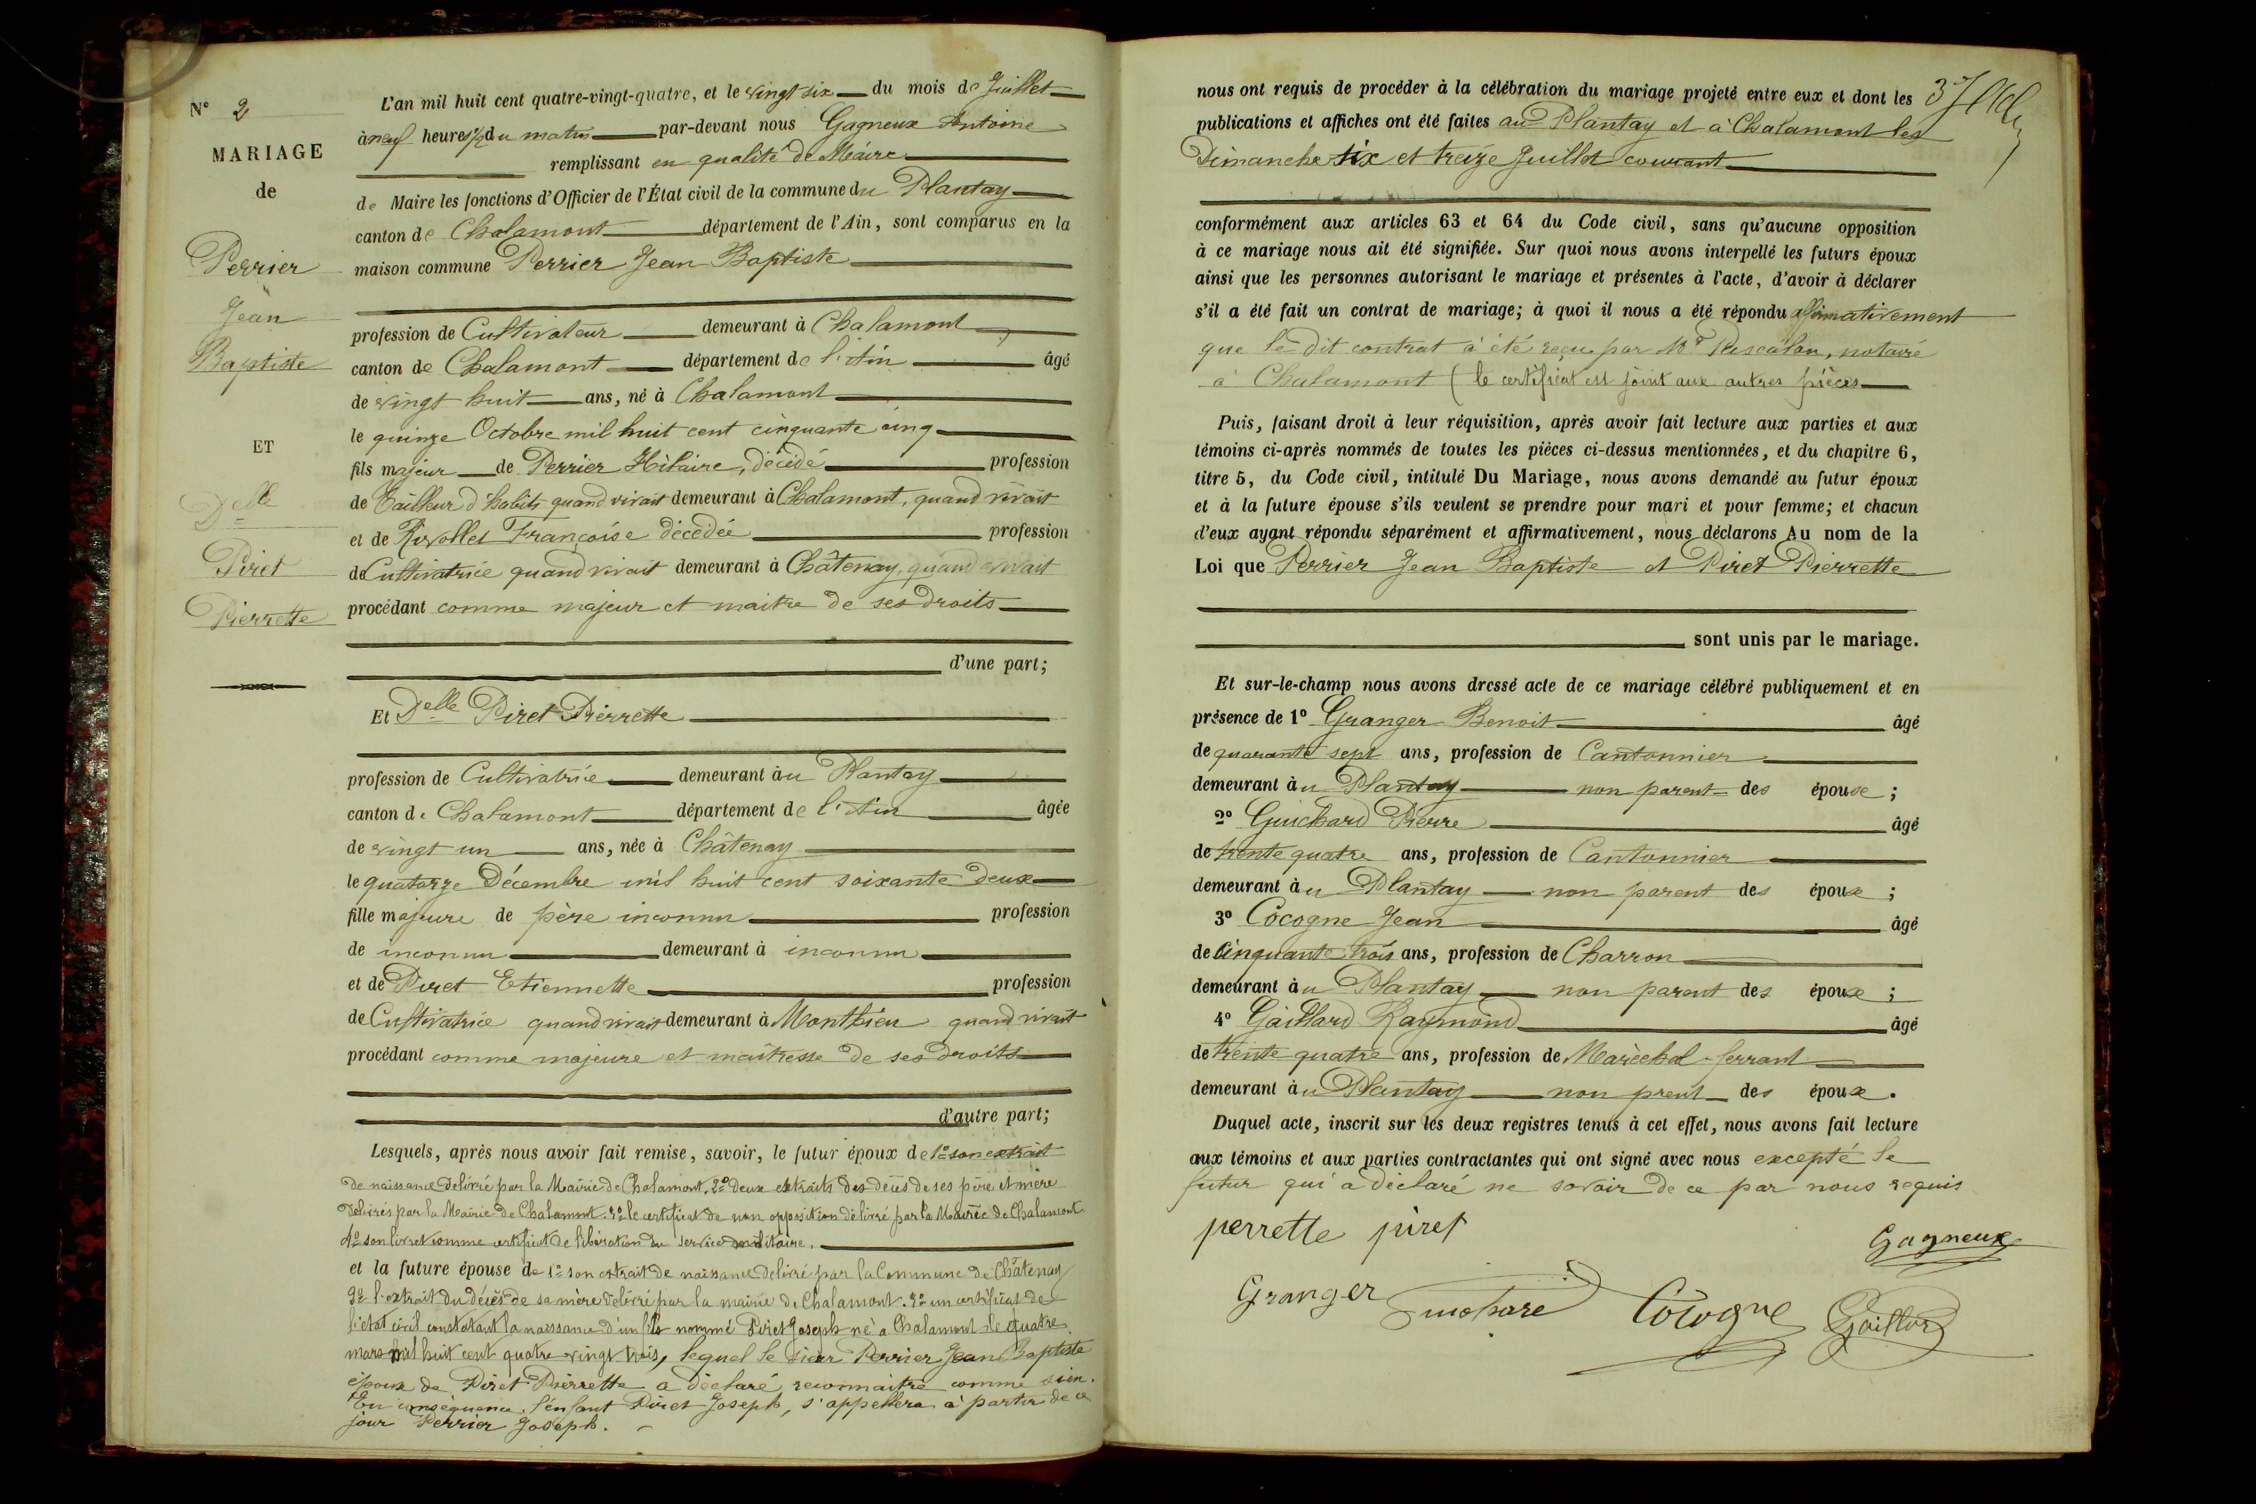 N° 2
MARIAGE
de
Perrier
Jean
Baptiste
ET
Delle
Piret
Pierrette
L'an mil huit cent quatre-vingt-quatre, et le vingt six du mois de Juillet
à neuf heures ½ du matin par-devant nous Gagneux Antoine
remplissant en qualité de Maire
de Maire les fonctions d'Officier de l'État civil de la commune du Plantay
canton de Chalamont département de l'Ain, sont comparus en la
maison commune Perrier Jean Baptiste
profession de Cultivateur demeurant à Chalamont
canton de Chalamont département de l'Ain âgé
de vingt huit ans, né à Chalamont
le quinze Octobre mil huit cent cinquante cinq
fils majeur de Perrier Hilaire, décédé profession
de Tailleur d'habits quand vivait demeurant à Chalamont, quand vivait
et de Rivollet Françoise décédée profession
de Cultivatrice quand vivait demeurant à Châtenay, quand vivait
procédant comme majeur et maitre de ses droits
d'une part;
Et Delle Piret Pierrette
profession de Cultivatrice demeurant au Plantay
canton de Chalamont département de l'Ain âgée
de vingt un ans, née à Châtenay
le quatorze Décembre mil huit cent soixante deux
fille majeure de père inconnu profession
de inconnu demeurant à inconnu
et de Piret Etiennette profession
de Cultivatrice quand vivait demeurant à Montbieu quand vivait
procédant comme majeure et maîtresse de ses droits
d'autre part;
Lesquels, après nous avoir fait remise, savoir, le futur époux de 1° son extrait
de naissance délivré par la Mairie de Chalamont. 2° deux extraits des décès de ses père et mère
délivrés par la Mairie de Chalamont. 3° le certificat de non opposition délivré par la Mairie de Chalamont
4° son livret comme certificat de libération du service militaire.
et la future épouse de 1° son extrait de naissance délivré par la Commune de Châtenay
2° l'extrait du décès de sa mère délivré par la mairie de Chalamont. 3° un certificat de
l'état civil constatant la naissance d'un fils nommé Piret Joseph né à Chalamont le quatre
mars mil huit cent quatre vingt trois, lequel le sieur Perrier Jean Baptiste
époux de Piret Pierrette a déclaré reconnaitre comme sien.
En conséquence, l'enfant Piret Joseph, s'appellera à partir de ce
jour Perrier Joseph.
nous ont requis de procéder à la célébration du mariage projeté entre eux et dont les
publications et affiches ont été faites au Plantay et à Chalamont les
Dimanche six et treize Juillet courant
conformément aux articles 63 et 64 du Code civil, sans qu'aucune opposition
à ce mariage nous ait été signifiée. Sur quoi nous avons interpellé les futurs époux
ainsi que les personnes autorisant le mariage et présentes à l'acte, d'avoir à déclarer
s'il a été fait un contrat de mariage; à quoi il nous a été répondu affirmativement
que le dit contrat à été reçu par Me Pascalon, notaire
à Chalamont (le certificat est joint aux autres pièces
Puis, faisant droit à leur réquisition, après avoir fait lecture aux parties et aux
témoins ci-après nommés de toutes les pièces ci-dessus mentionnées, et du chapitre 6,
titre 5, du Code civil, intitulé Du Mariage, nous avons demandé au futur époux
et à la future épouse s'ils veulent se prendre pour mari et pour femme; et chacun
d'eux ayant répondu séparément et affirmativement, nous déclarons Au nom de la
Loi que Perrier Jean Baptiste et Piret Pierrette
sont unis par le mariage.
Et sur-le-champ nous avons dressé acte de ce mariage célébré publiquement et en
présence de 1° Granger Benoit âgé
de quarante sept ans, profession de Cantonnier
demeurant au Plantay non parent des épouse;
2° Guichard Pierre âgé
de trente quatre ans, profession de Cantonnier
demeurant au Plantay non parent des époux;
3° Cocogne Jean âgé
de cinquante trois ans, profession de Charron
demeurant au Plantay non parent des époux;
4° Gaillard Raymond âgé
de trente quatre ans, profession de Maréchal-ferrant
demeurant au Plantay non prent des époux.
Duquel acte, inscrit sur les deux registres tenus à cet effet, nous avons fait lecture
aux témoins et aux parties contractantes qui ont signé avec nous excepté le
futur qui a déclaré ne savoir de ce par nous requis
perrette piret
Gagneux
Granger Guichard Cocogne Gaillard